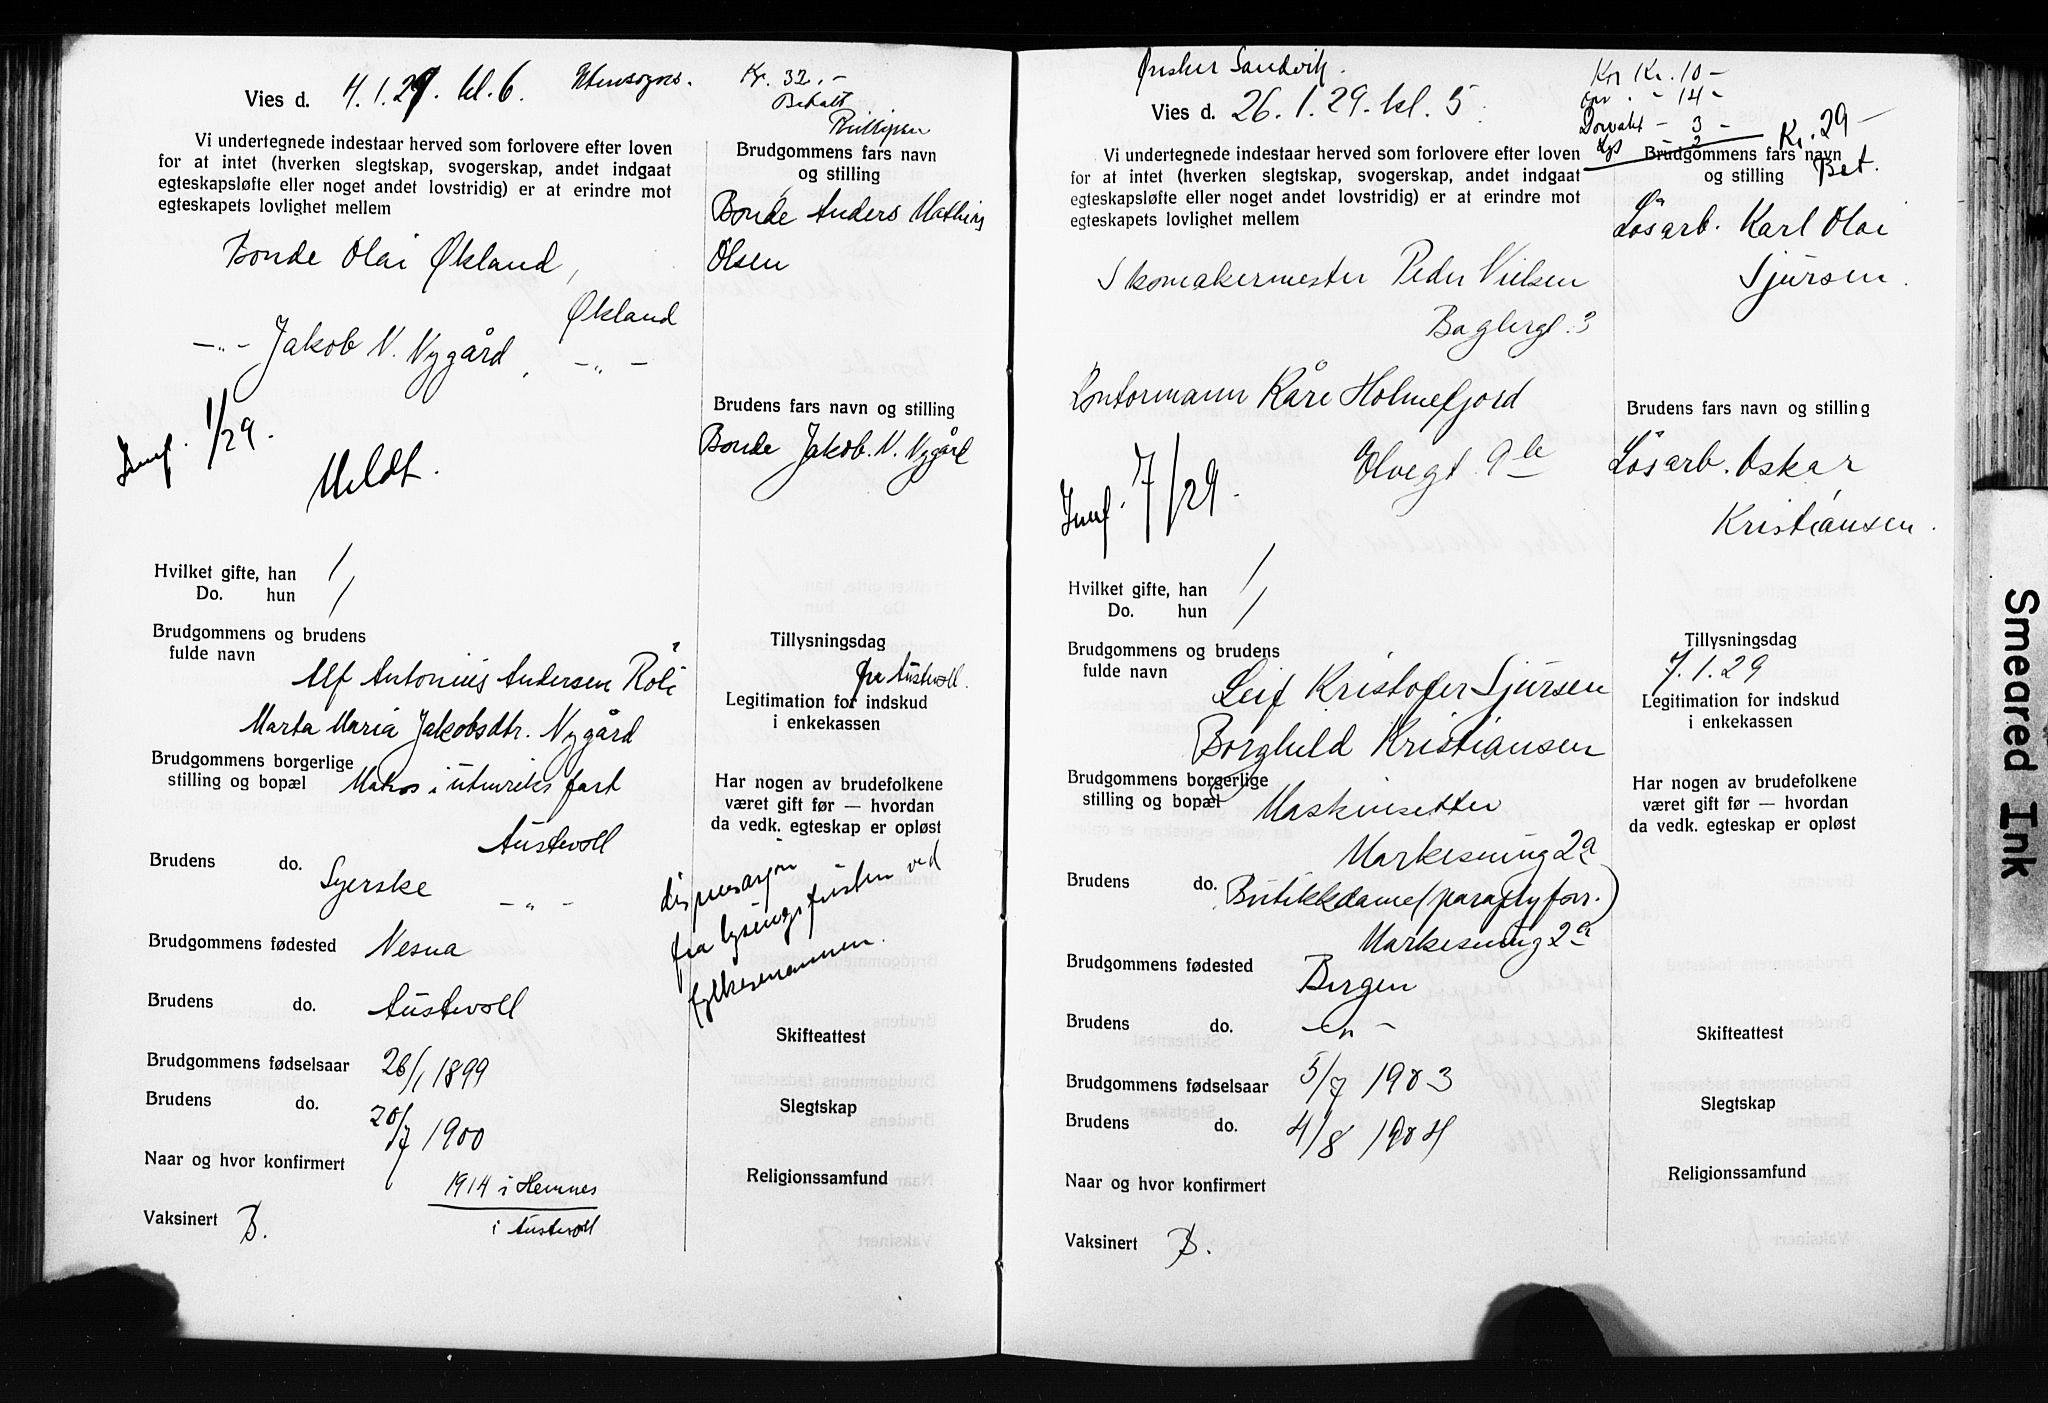 Vies d. 4.1.29. kl. 6. Utensogns.
Kr. 32.-
Betalt
Vi undertegnede indestaar herved som forlovere efter loven
for at intet (hverken slegtskap, svogerskap, andet indgaat
egteskapsløfte eller noget andet lovstridig) er at erindre mot
egteskapets lovlighet mellem
Bonde Olai Økland,
Økland
-"- Jakob N. Nygård, -"-
1/29.
Meldt.
Hvilket gifte, han 1
Do. hun 1
Brudgommens og brudens
fulde navn
Alf Antonius Andersen Röli
Marta Maria Jakobsdtr. Nygård
Brudgommens borgerlige
stilling og bopæl Matros i utenriks fart
Austevoll
Brudens do. Syerske -"-
Brudgommens fødested Nesna
Brudens do. Austevoll
Brudgommens fødselsaar 26/1 1899
Brudens do. 20/7 1900
Naar og hvor konfirmert
1914 i Hemnes
i Austevoll
Vaksinert B.
Brudgommens fars navn
og stilling
Bonde Anders Mathias
Olsen
Brudens fars navn og stilling
Bonde Jakob. N. Nygård
Tillysningsdag
fra Austevoll.
Legitimation for indskud
i enkekassen
Har nogen av brudefolkene
været gift før — hvordan
da vedk. egteskap er opløst
dispensasjon
fra lysingsfristen ved
fylkesmannen.
Skifteattest
Slegtskap
Religionssamfund
Ønsker Sandvik.
Vies d. 26.1.29. kl. 5.
Kor Kr. 10-
- 14-
Dørvakt - 3 -
Lys - 2
Kr. 29-
Bet.
Vi undertegnede indestaar herved som forlovere efter loven
for at intet (hverken slegtskap, svogerskap, andet indgaat
egteskapsløfte eller noget andet lovstridig) er at erindre mot
egteskapets lovlighet mellem
Skomakermester Peder Nielsen
Baglergt. 3
Kontormann Kåre Holmefjord
Elvegt. 9 b
7/1 29.
Hvilket gifte, han 1
Do. hun 1
Brudgommens og brudens
fulde navn
Leif Kristofer Sjursen
Borghild Kristiansen
Brudgommens borgerlige
stilling og bopæl Maskinsetter
Markesmug 2a
Brudens do. Butikkdame (paraplyforr.)
Markesmug 2a
Brudgommens fødested Bergen
Brudens do. -"-
Brudgommens fødselsaar 5/7 1903
Brudens do. 4/8 1904
Naar og hvor konfirmert
Vaksinert B.
Brudgommens fars navn
og stilling
Løsarb. Karl Olai
Sjursen.
Brudens fars navn og stilling
Løsarb. Oskar
Kristiansen.
Tillysningsdag
7.1.29
Legitimation for indskud
i enkekassen
Har nogen av brudefolkene
været gift før — hvordan
da vedk. egteskap er opløst
Skifteattest
Slegtskap
Religionssamfund
Smeared Ink